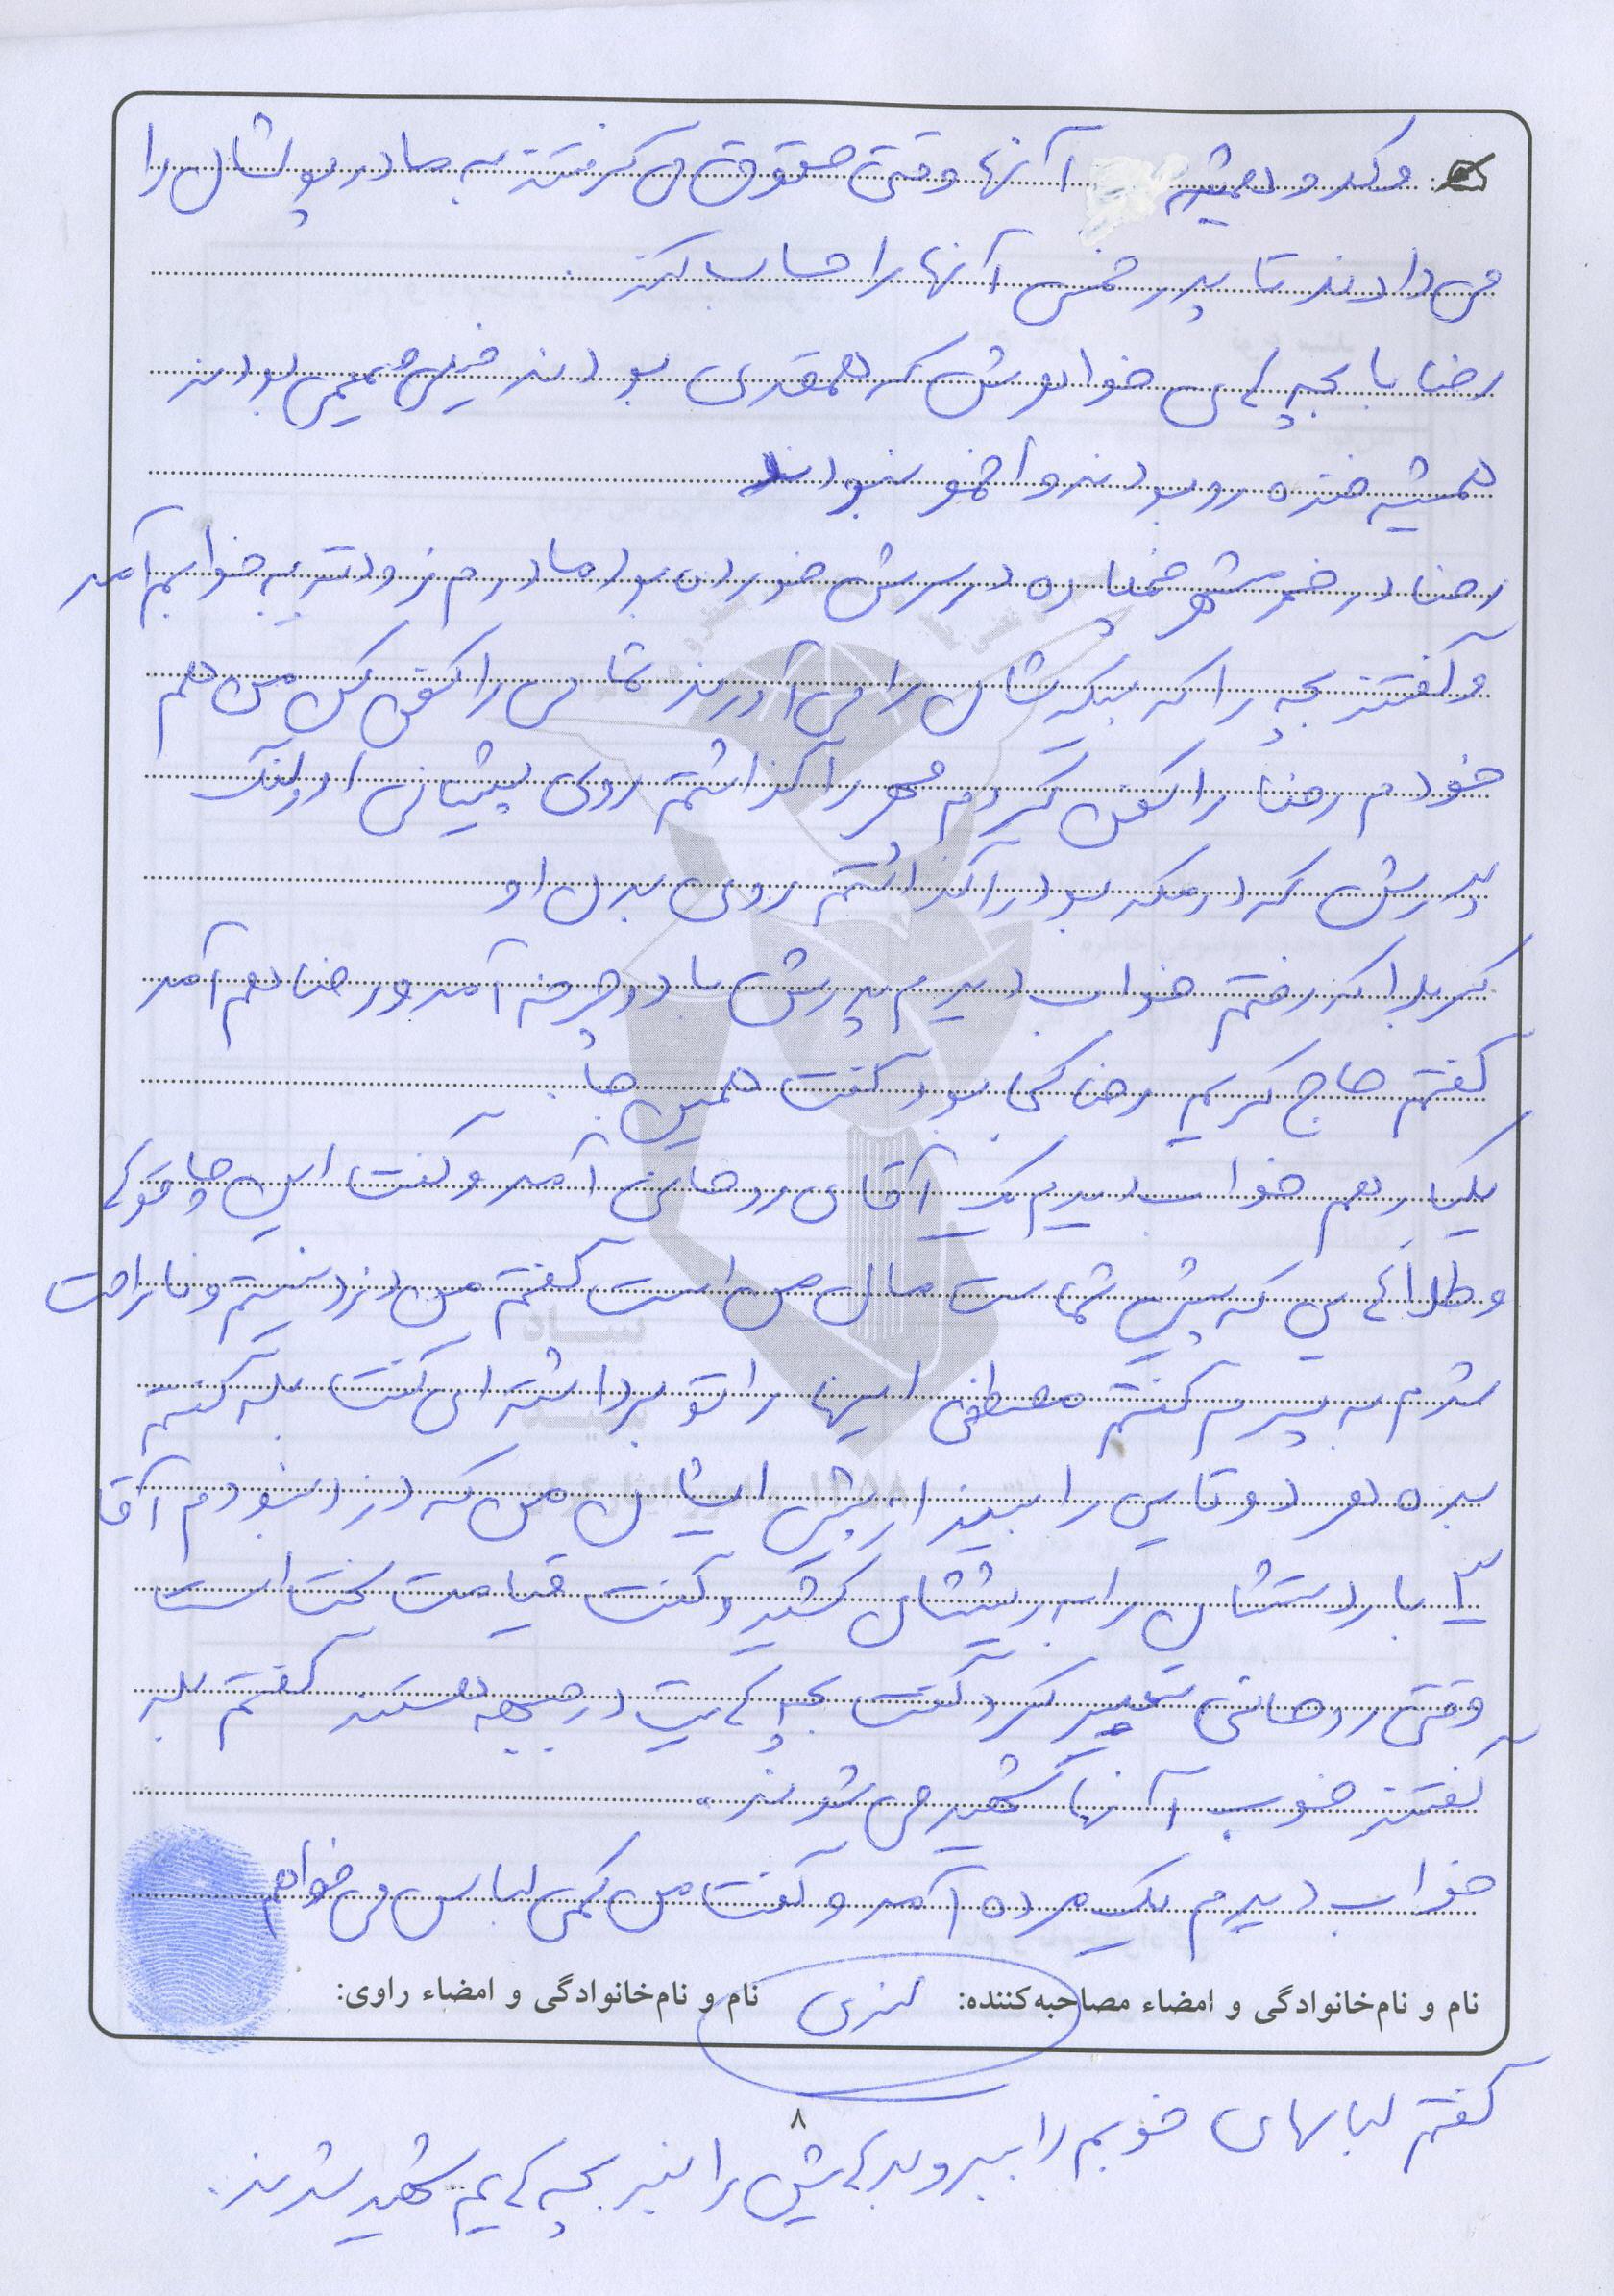 و کند و همیشه آنها وقتی حقوق می گرفتند به مادر پولشان را
می دادند تا پدر خمس آنها را حساب کند.
رضا با بچه های خواهرش که همقدی بودند خیلی صمیمی بودند
همیشه خنده رو بودند و اخمو نبودند
رضا در خرمشهر خمپاره در سرش خورده بود مادرم زودتر به خوابم آمد
و گفتند بچه را که پیکرشان را می آورند تمامی را کفن کن من هم
خودم رضا را کفن کردم مهر را گذاشتم روی پیشانی او و لنگ
پدرش که در مکه بود را گذاشتم روی بدن او
کربلا که رفتم خواب دیدم پدرش با دوچرخه آمد و رضا هم آمد
گفتم حاج کریم رضا کجا بود گفت همین جا.
یکبار هم خواب دیدم یک آقای روحانی آمد و گفت این چاقو ها
و طلاهایی که پیش شماست مال من است گفتم من دزد نیستم و ناراحت
شدم به پسرم گفتم مصطفی اینها را تو برداشته ای گفت بله گفتم
بده هر دوتایی را ببرند از پیش ایشان من که دزد نبودم آقا
۲ بار دستشان را به ریششان کشید و گفت قیامت سخت است
وقتی روحانی تعبیر کرد گفت بچه هایت در جبهه هستند گفتم بله
گفتند خوب آنها شهید می شوند.
خواب دیدم یک مرده آمد و گفت من کمی لباس می خواهم
نام و نام‌خانوادگی و امضاء مصاحبه‌کننده: نام و نام‌خانوادگی و امضاء راوی:
۸
گفتم لباسهای خوبم را ببر و بدهایش را نبر بچه هایم شهید شدند.